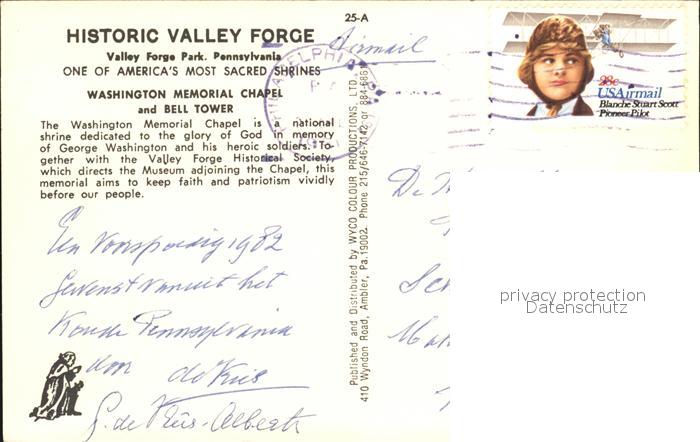 25-A
HISTORIC VALLEY FORGE
Valley Forge Park, Pennsylvania
ONE OF AMERICA'S MOST SACRED SHRINES
WASHINGTON MEMORIAL CHAPEL
and BELL TOWER
The Washington Memorial Chapel is a national
shrine dedicated to the glory of God in memory
of George Washington and his heroic soldiers. To-
gether with the Valley Forge Historical Society,
which directs the Museum adjoining the Chapel, this
memorial aims to keep faith and patriotism vividly
before our people.
Een Voorspoedig 1982
Gewenst vanuit het
Koude Pennsylvania
door de Kris
G. de Kris-Alberts
Published and Distributed by WYCO COLOUR PRODUCTIONS, LTD.
410 Wyndon Road, Ambler, Pa. 19002. Phone 215/646-7142 or 884-686
Airmail
PHILADELPHI
28c
USAirmail
Blanche Stuart Scott
Pioneer Pilot
De
privacy protection
Datenschutz